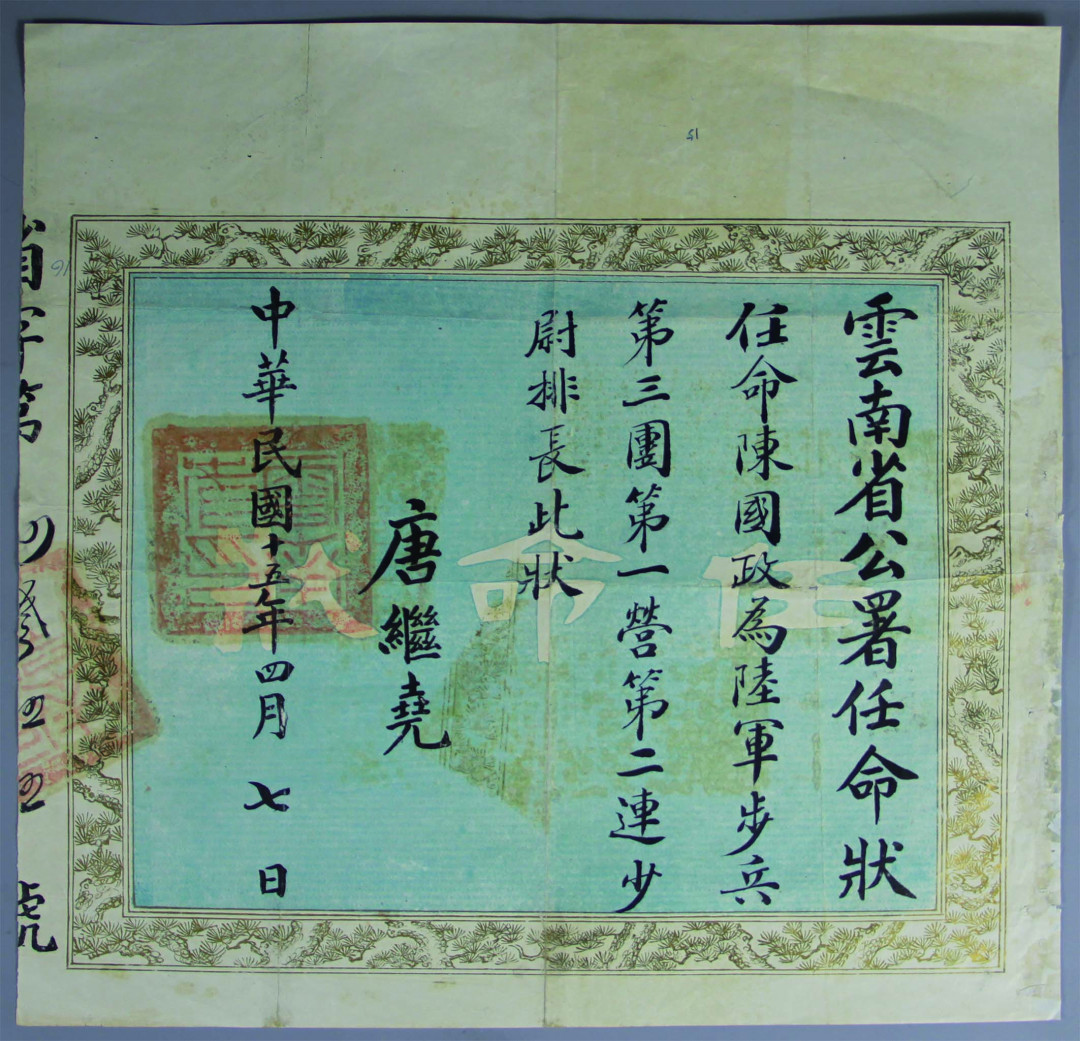 雲南省公署任命狀
任命陳國政為陸軍步兵
第三團第一營第二連少
尉排長此狀
唐繼堯
中華民國十五年四月七日
任命狀
省字第
號